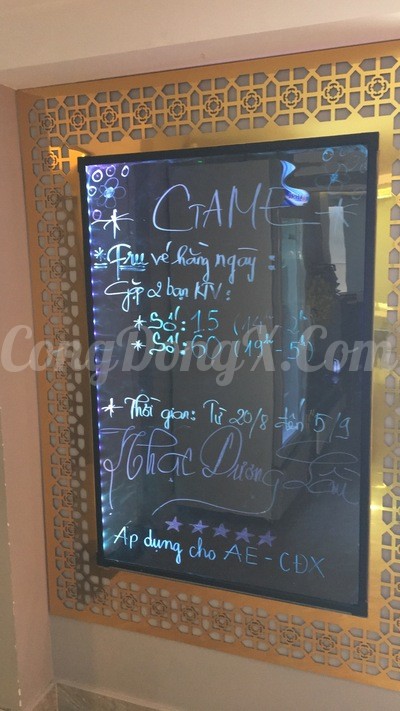 GAME
* Free vé hằng ngày :
Gặp 2 bạn KTV :
* Số : 15
* Số : 60
CongDongX.Com
* Thời gian : Từ 20/8 đến 5/9
Nhạc Dương
Áp dụng cho AE - CĐX